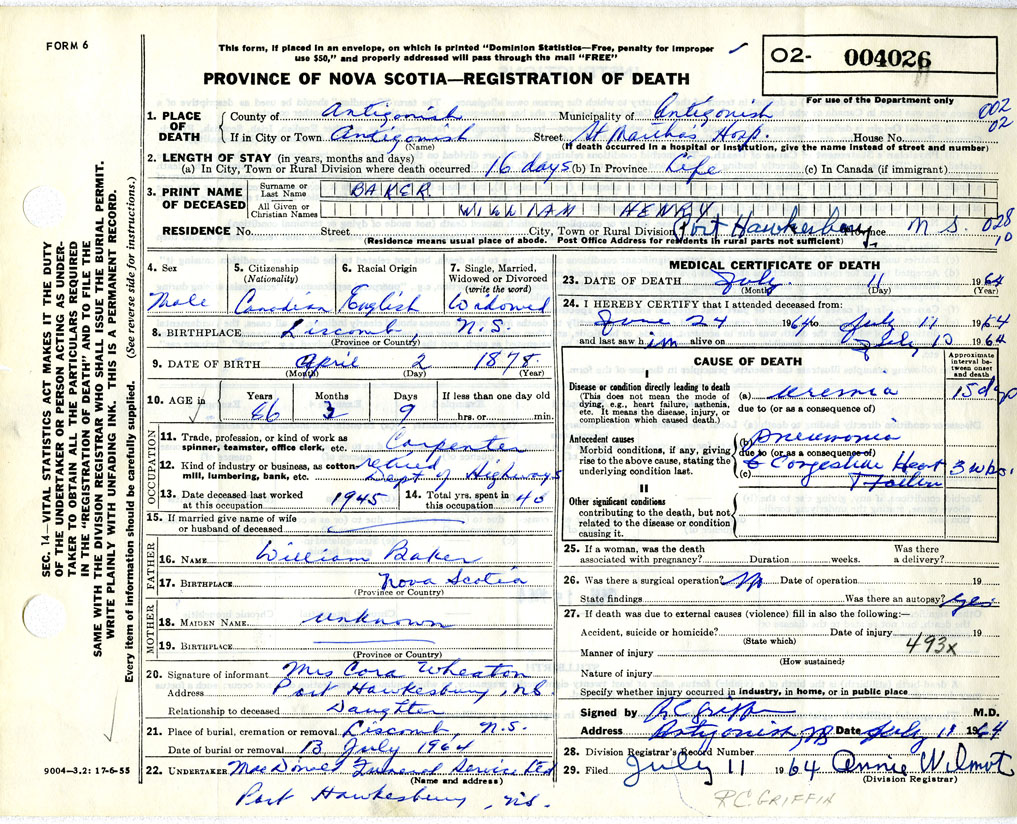 FORM 6
This form, if placed in an envelope, on which is printed "Dominion Statistics—Free, penalty for improper
use $50," and properly addressed will pass through the mail "FREE"
PROVINCE OF NOVA SCOTIA—REGISTRATION OF DEATH
02- 004026
For use of the Department only
002
02
1. PLACE OF DEATH
County of Antigonish Municipality of Antigonish
If in City or Town Antigonish Street St Martha's Hosp. House No.
(Name) (If death occurred in a hospital or institution, give the name instead of street and number)
2. LENGTH OF STAY (in years, months and days)
(a) In City, Town or Rural Division where death occurred 16 days (b) In Province Life (c) In Canada (if immigrant)
3. PRINT NAME OF DECEASED
Surname or Last Name BAKER
All Given or Christian Names WILLIAM HENRY
RESIDENCE No. Street City, Town or Rural Division Port Hawkesbury, Province N S. 028
10
(Residence means usual place of abode. Post Office Address for residents in rural parts not sufficient)
4. Sex Male
5. Citizenship (Nationality) Canadian
6. Racial Origin English
7. Single, Married, Widowed or Divorced (write the word) Widowed
8. BIRTHPLACE Liscomb, N.S.
(Province or Country)
9. DATE OF BIRTH April 2 1878.
(Month) (Day) (Year)
10. AGE in Years Months Days If less than one day old
86 3 9 hrs. or min.
OCCUPATION
11. Trade, profession, or kind of work as spinner, teamster, office clerk, etc. Carpenter
12. Kind of industry or business, as cotton mill, lumbering, bank, etc. retired Dept of Highways
13. Date deceased last worked at this occupation 1945
14. Total yrs. spent in this occupation
15. If married give name of wife or husband of deceased
FATHER
16. NAME William Baker
17. BIRTHPLACE Nova Scotia
(Province or Country)
MOTHER
18. MAIDEN NAME unknown
19. BIRTHPLACE
(Province or Country)
20. Signature of informant Mrs Cora Wheaton
Address Port Hawkesbury, NS
Relationship to deceased Daughter
21. Place of burial, cremation or removal Liscomb, N.S.
Date of burial or removal 13 July 1964
22. UNDERTAKER MacDonel Funeral Service Ltd
(Name and address)
Port Hawkesbury, NS.
MEDICAL CERTIFICATE OF DEATH
23. DATE OF DEATH July 11 1964
(Month) (Day) (Year)
24. I HEREBY CERTIFY that I attended deceased from:
June 24 1964 to July 11 1964
and last saw him alive on July 10 1964
CAUSE OF DEATH
Approximate interval between onset and death
I
Disease or condition directly leading to death
(This does not mean the mode of dying, e.g., heart failure, asthenia, etc. It means the disease, injury, or complication which caused death.)
(a) uremia
due to (or as a consequence of)
Antecedent causes
Morbid conditions, if any, giving rise to the above cause, stating the underlying condition last.
(b) Pneumonia
due to (or as a consequence of)
(c) Congestive Heart 3 wks.
II
Other significant conditions
contributing to the death, but not related to the disease or condition causing it.
25. If a woman, was the death associated with pregnancy? Duration weeks. Was there a delivery?
26. Was there a surgical operation? Date of operation 19
State findings Was there an autopsy?
27. If death was due to external causes (violence) fill in also the following:—
Accident, suicide or homicide? Date of injury 19
(State which)
493x
Manner of injury
(How sustained?)
Nature of injury
Specify whether injury occurred in industry, in home, or in public place
Signed by RC Griffin M.D.
Address Antigonish, NS Date July 11 1964
28. Division Registrar's Record Number
29. Filed July 11 1964 Annie Wilmot
(Division Registrar)
R.C. GRIFFIN
SEC. 14—VITAL STATISTICS ACT MAKES IT THE DUTY
OF THE UNDERTAKER OR PERSON ACTING AS UNDER-
TAKER TO OBTAIN ALL THE PARTICULARS REQUIRED
IN THE "REGISTRATION OF DEATH" AND TO FILE THE
SAME WITH THE DIVISION REGISTRAR WHO SHALL ISSUE THE BURIAL PERMIT.
WRITE PLAINLY WITH UNFADING INK. THIS IS A PERMANENT RECORD.
Every item of information should be carefully supplied. (See reverse side for instructions.)
9004-3.2: 17-6-55